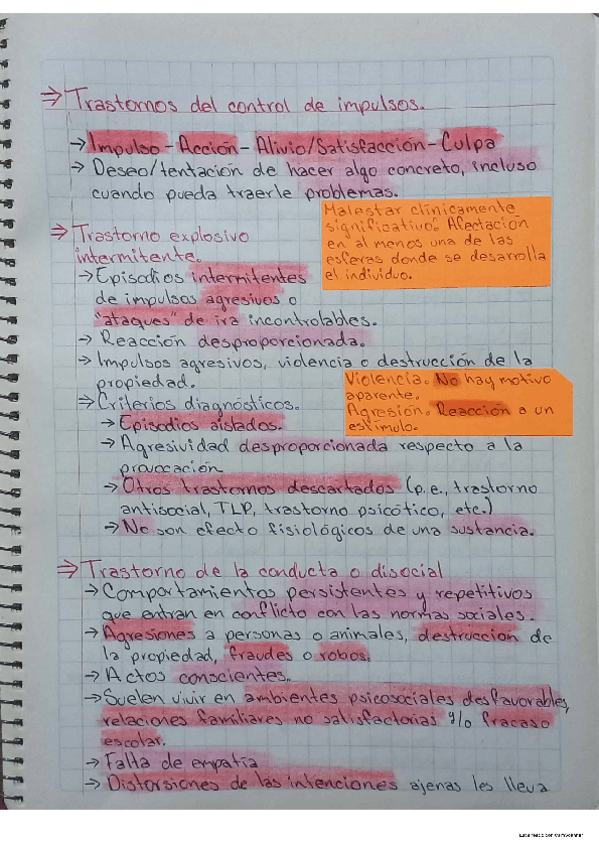 ⇒ Trastornos del control de impulsos.
→ Impulso - Acción - Alivio/Satisfacción - Culpa
→ Deseo/tentación de hacer algo concreto, incluso
cuando pueda traerle problemas.
Malestar clínicamente
significativo. Afectación
en al menos una de las
esferas donde se desarrolla
el individuo.
⇒ Trastorno explosivo
intermitente.
→ Episodios intermitentes
de impulsos agresivos o
"ataques" de ira incontrolables.
→ Reacción desproporcionada.
→ Impulsos agresivos, violencia o destrucción de la
propiedad.
Violencia. No hay motivo
aparente.
Agresión. Reacción a un
estímulo.
→ Criterios diagnósticos.
→ Episodios aislados.
→ Agresividad desproporcionada respecto a la
provocación
→ Otros trastornos descartados (p.e., trastorno
antisocial, TLP, trastorno psicótico, etc.)
→ No son efecto fisiológicos de una sustancia.
⇒ Trastorno de la conducta o disocial
→ Comportamientos persistentes y repetitivos
que entran en conflicto con las normas sociales.
→ Agresiones a personas o animales, destrucción de
la propiedad, fraudes o robos.
→ Actos conscientes.
→ Suelen vivir en ambientes psicosociales desfavorables,
relaciones familiares no satisfactorias y/o fracaso
escolar.
→ Falta de empatía
→ Distorsiones de las intenciones ajenas les lleva